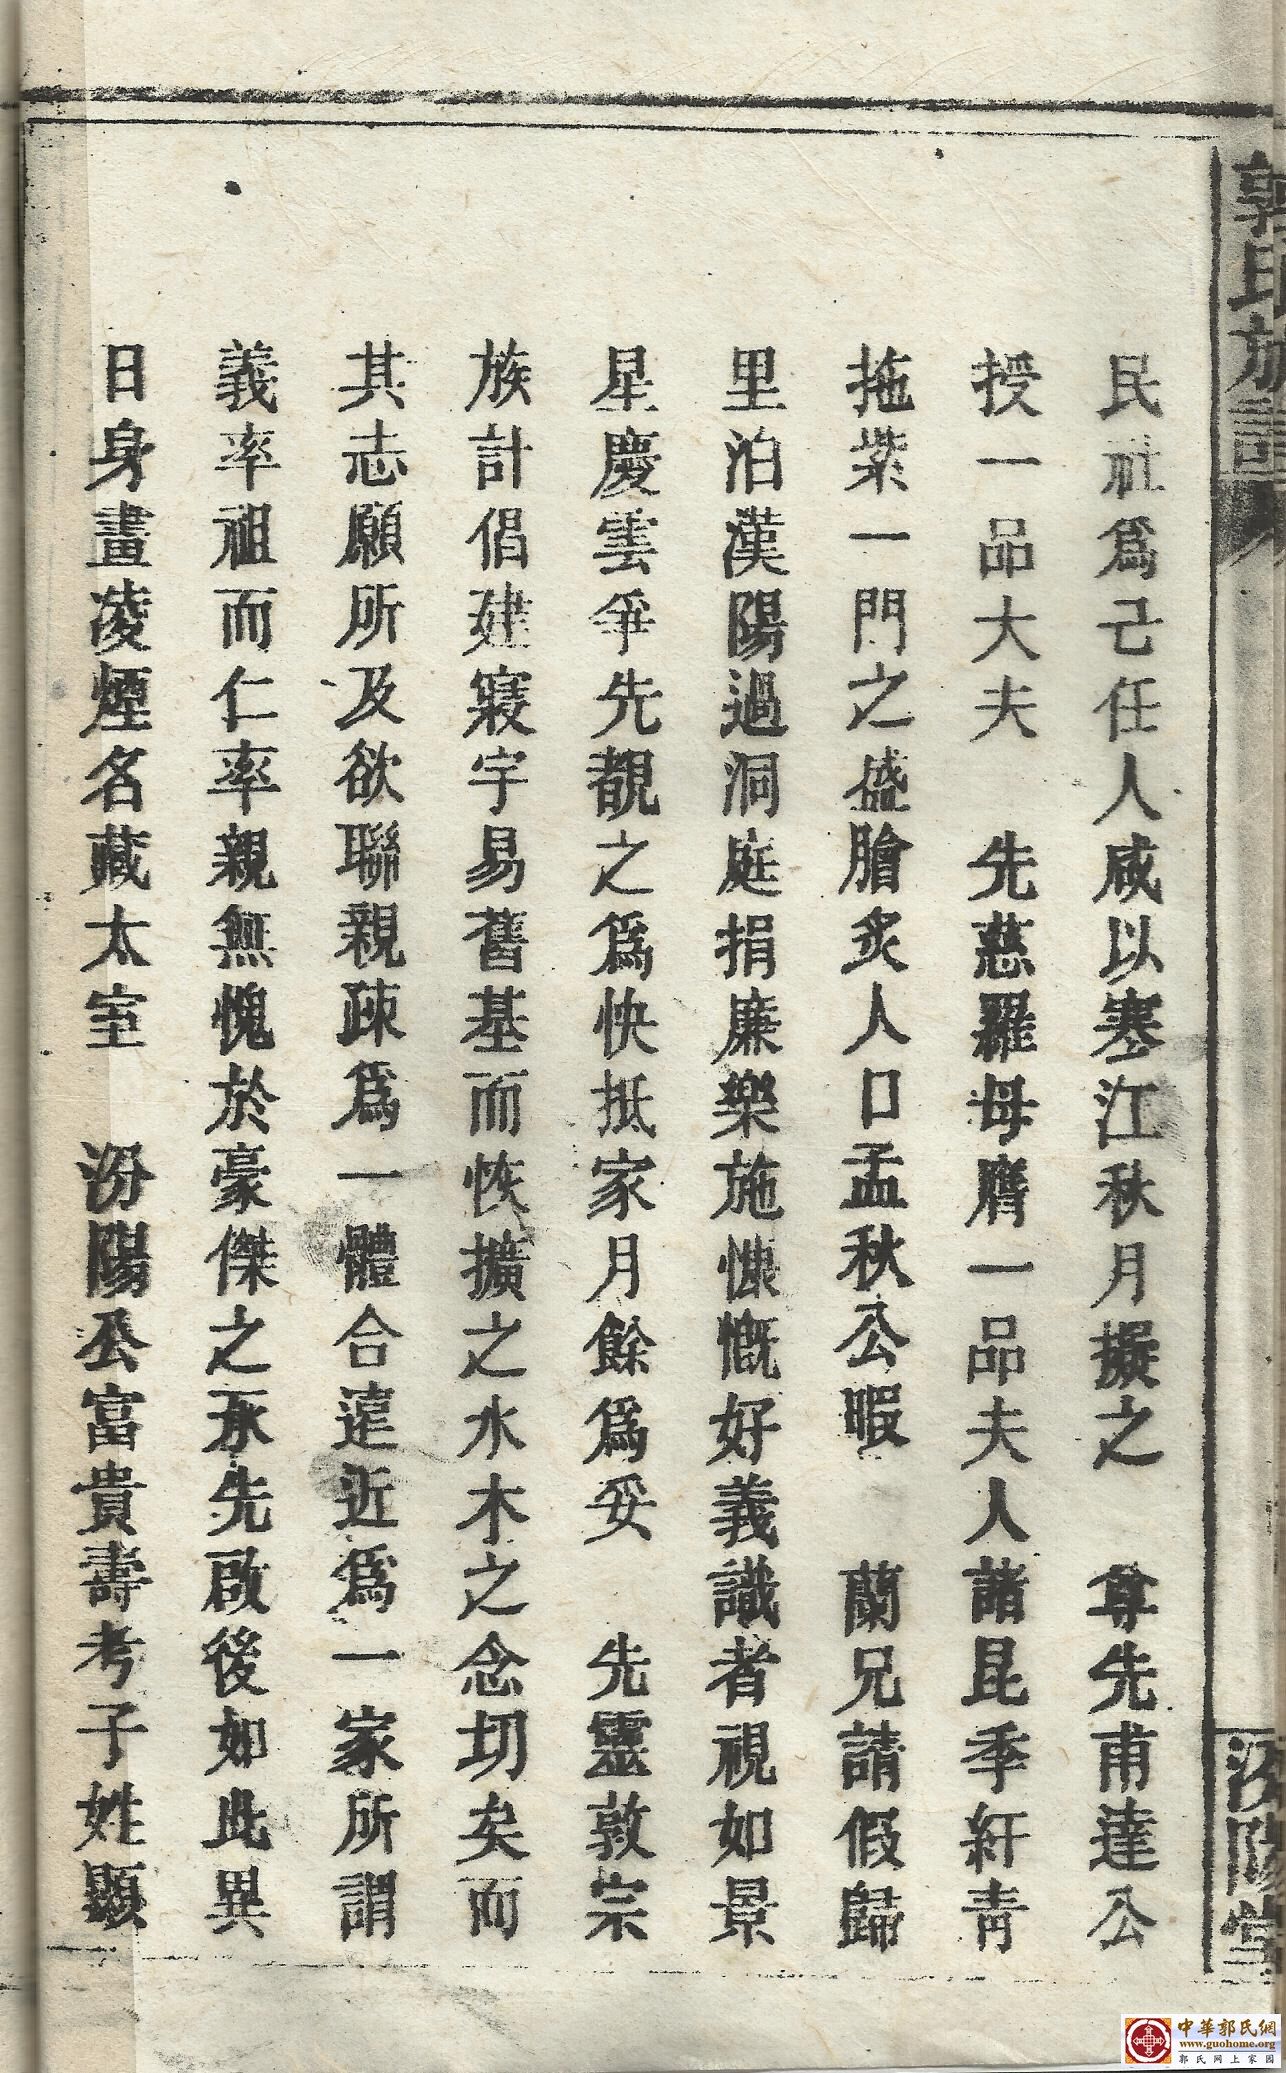 郭氏族譜
汾陽堂
民社爲己任人咸以寒江秋月擬之　尊先甫達公
授一品大夫　先慈羅母膺一品夫人諸昆季紆青
拖紫一門之盛膾炙人口孟秋公暇　蘭兄請假歸
里泊漢陽過洞庭捐廉樂施慷慨好義識者視如景
星慶雲爭先覩之爲快抵家月餘爲妥　先靈敦宗
族計倡建寢宇易舊基而恢擴之水木之念切矣而
其志願所及欲聯親疎爲一體合遠近爲一家所謂
義率祖而仁率親無愧於豪傑之承先啟後如此異
日身畫凌煙名藏太室　汾陽公富貴壽考子姓顯
中華郭氏網
www.guohome.org
郭氏网上家园